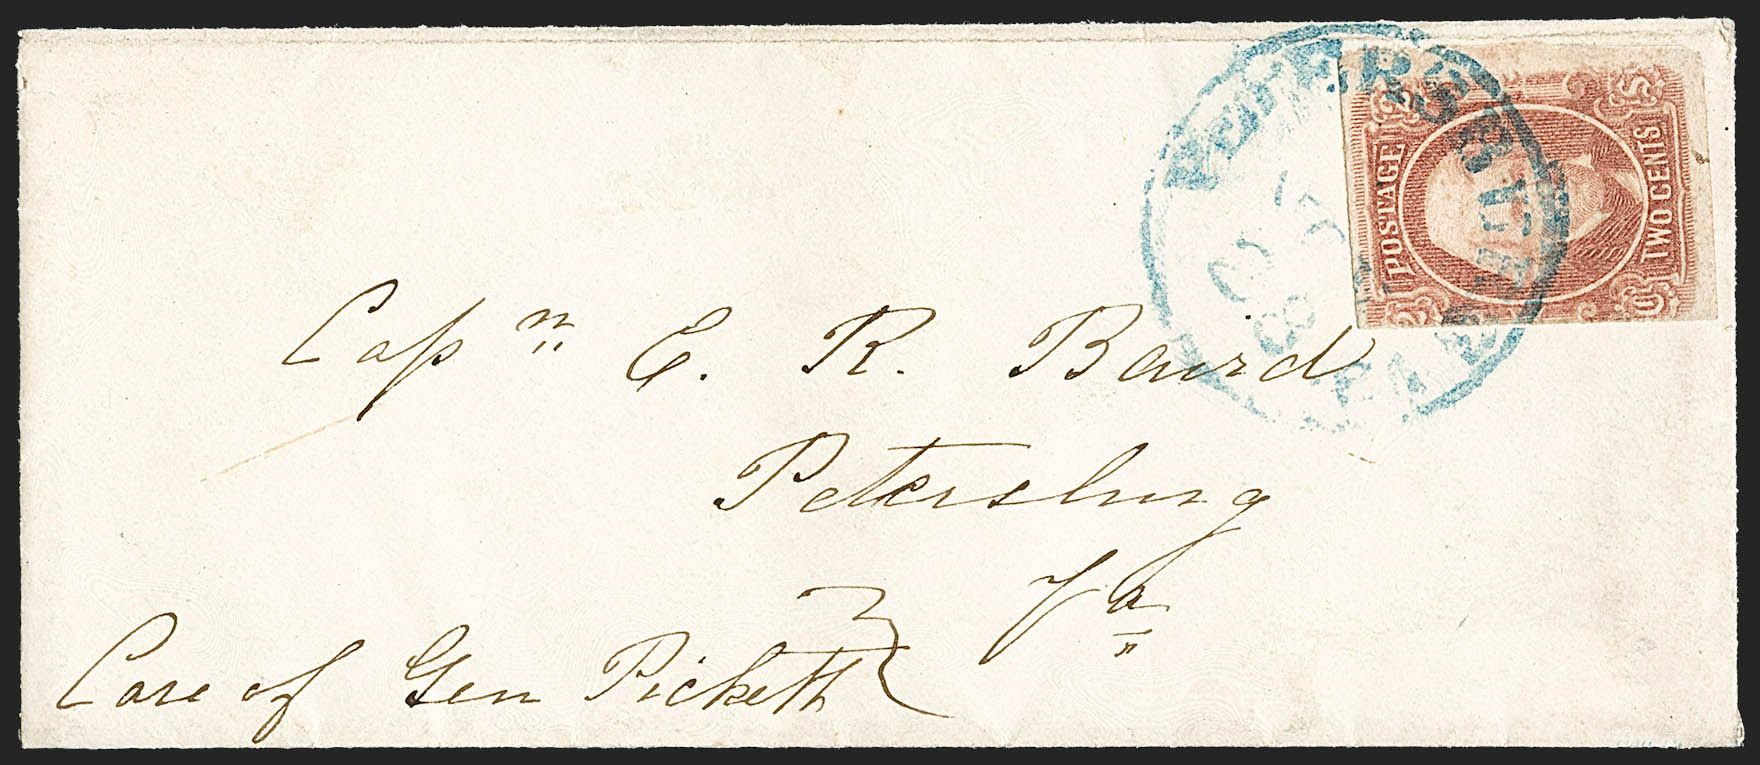 PETERSBURG
VA.
POSTAGE
TWO CENTS
2
2
Capn E. R. Baird
Petersburg
Va
Care of Gen Pickett